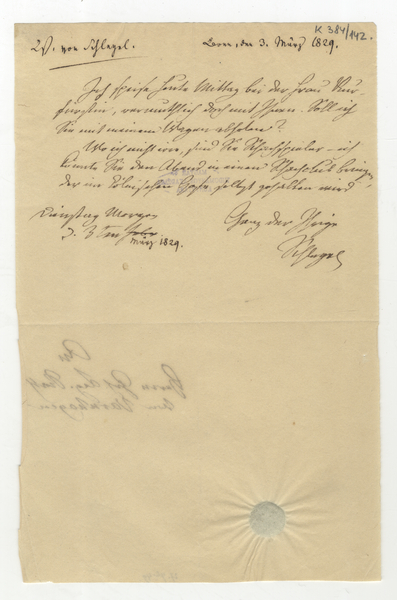 K 384/142.
W. von Schlegel. Bonn, den 3. März 1829.
Ich speise heute Mittag bei der Frau Kur-
fürstin, vermuthlich doch mit Ihnen. Soll ich
Sie mit meinem Wagen abholen?
Wo ich nicht irre, sind Sie Schachspieler – ich
könnte Sie den Abend in einen Schachclub bringen,
der im Cölnischen Hofe selbst gehalten wird.
Dienstag Morgen Ganz der Ihrige
d. 3ten Febr Schlegel
März 1829.
An
Herrn Geh. Leg. Rath
von Varnhagen